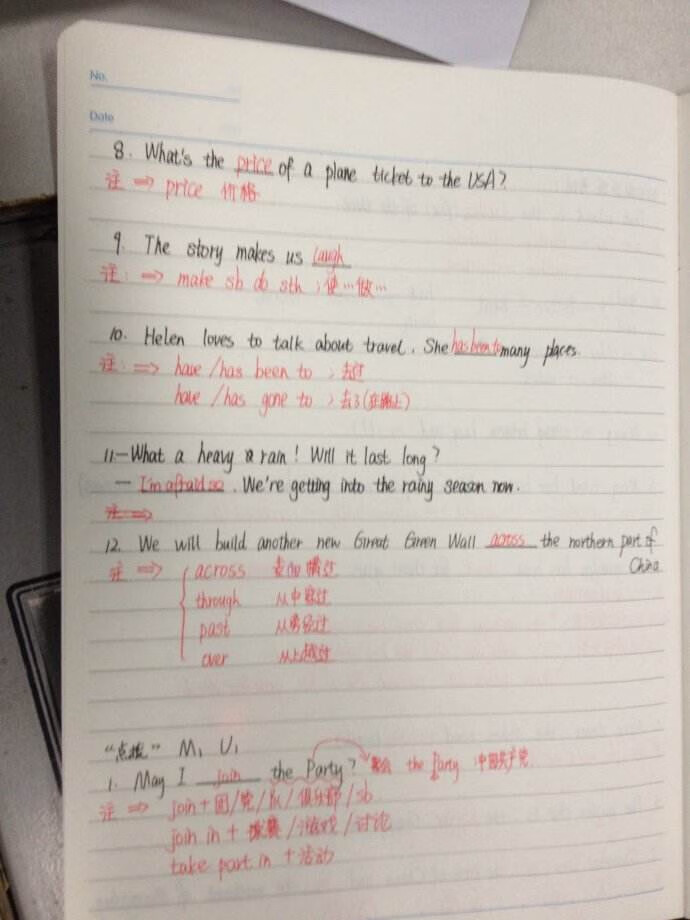 No.
Date
8. What's the price of a plane ticket to the USA?
注 => price 价格
9. The story makes us laugh
注: => make sb do sth ; 使…做…
10. Helen loves to talk about travel. She has been to many places.
注: => have/has been to ; 去过
have/has gone to ; 去了(在路上)
11.—What a heavy rain! Will it last long?
— I'm afraid so. We're getting into the rainy season now.
注 =>
12. We will build another new Great Green Wall across the northern part of China
注 => across 表面横过
through 从中穿过
past 从旁经过
over 从上越过
"点拨" M1 U1
1. May I join the Party? 聚会 the Party 中国共产党
注 => join + 团/党/队/俱乐部/sb
join in + 比赛/游戏/讨论
take part in + 活动